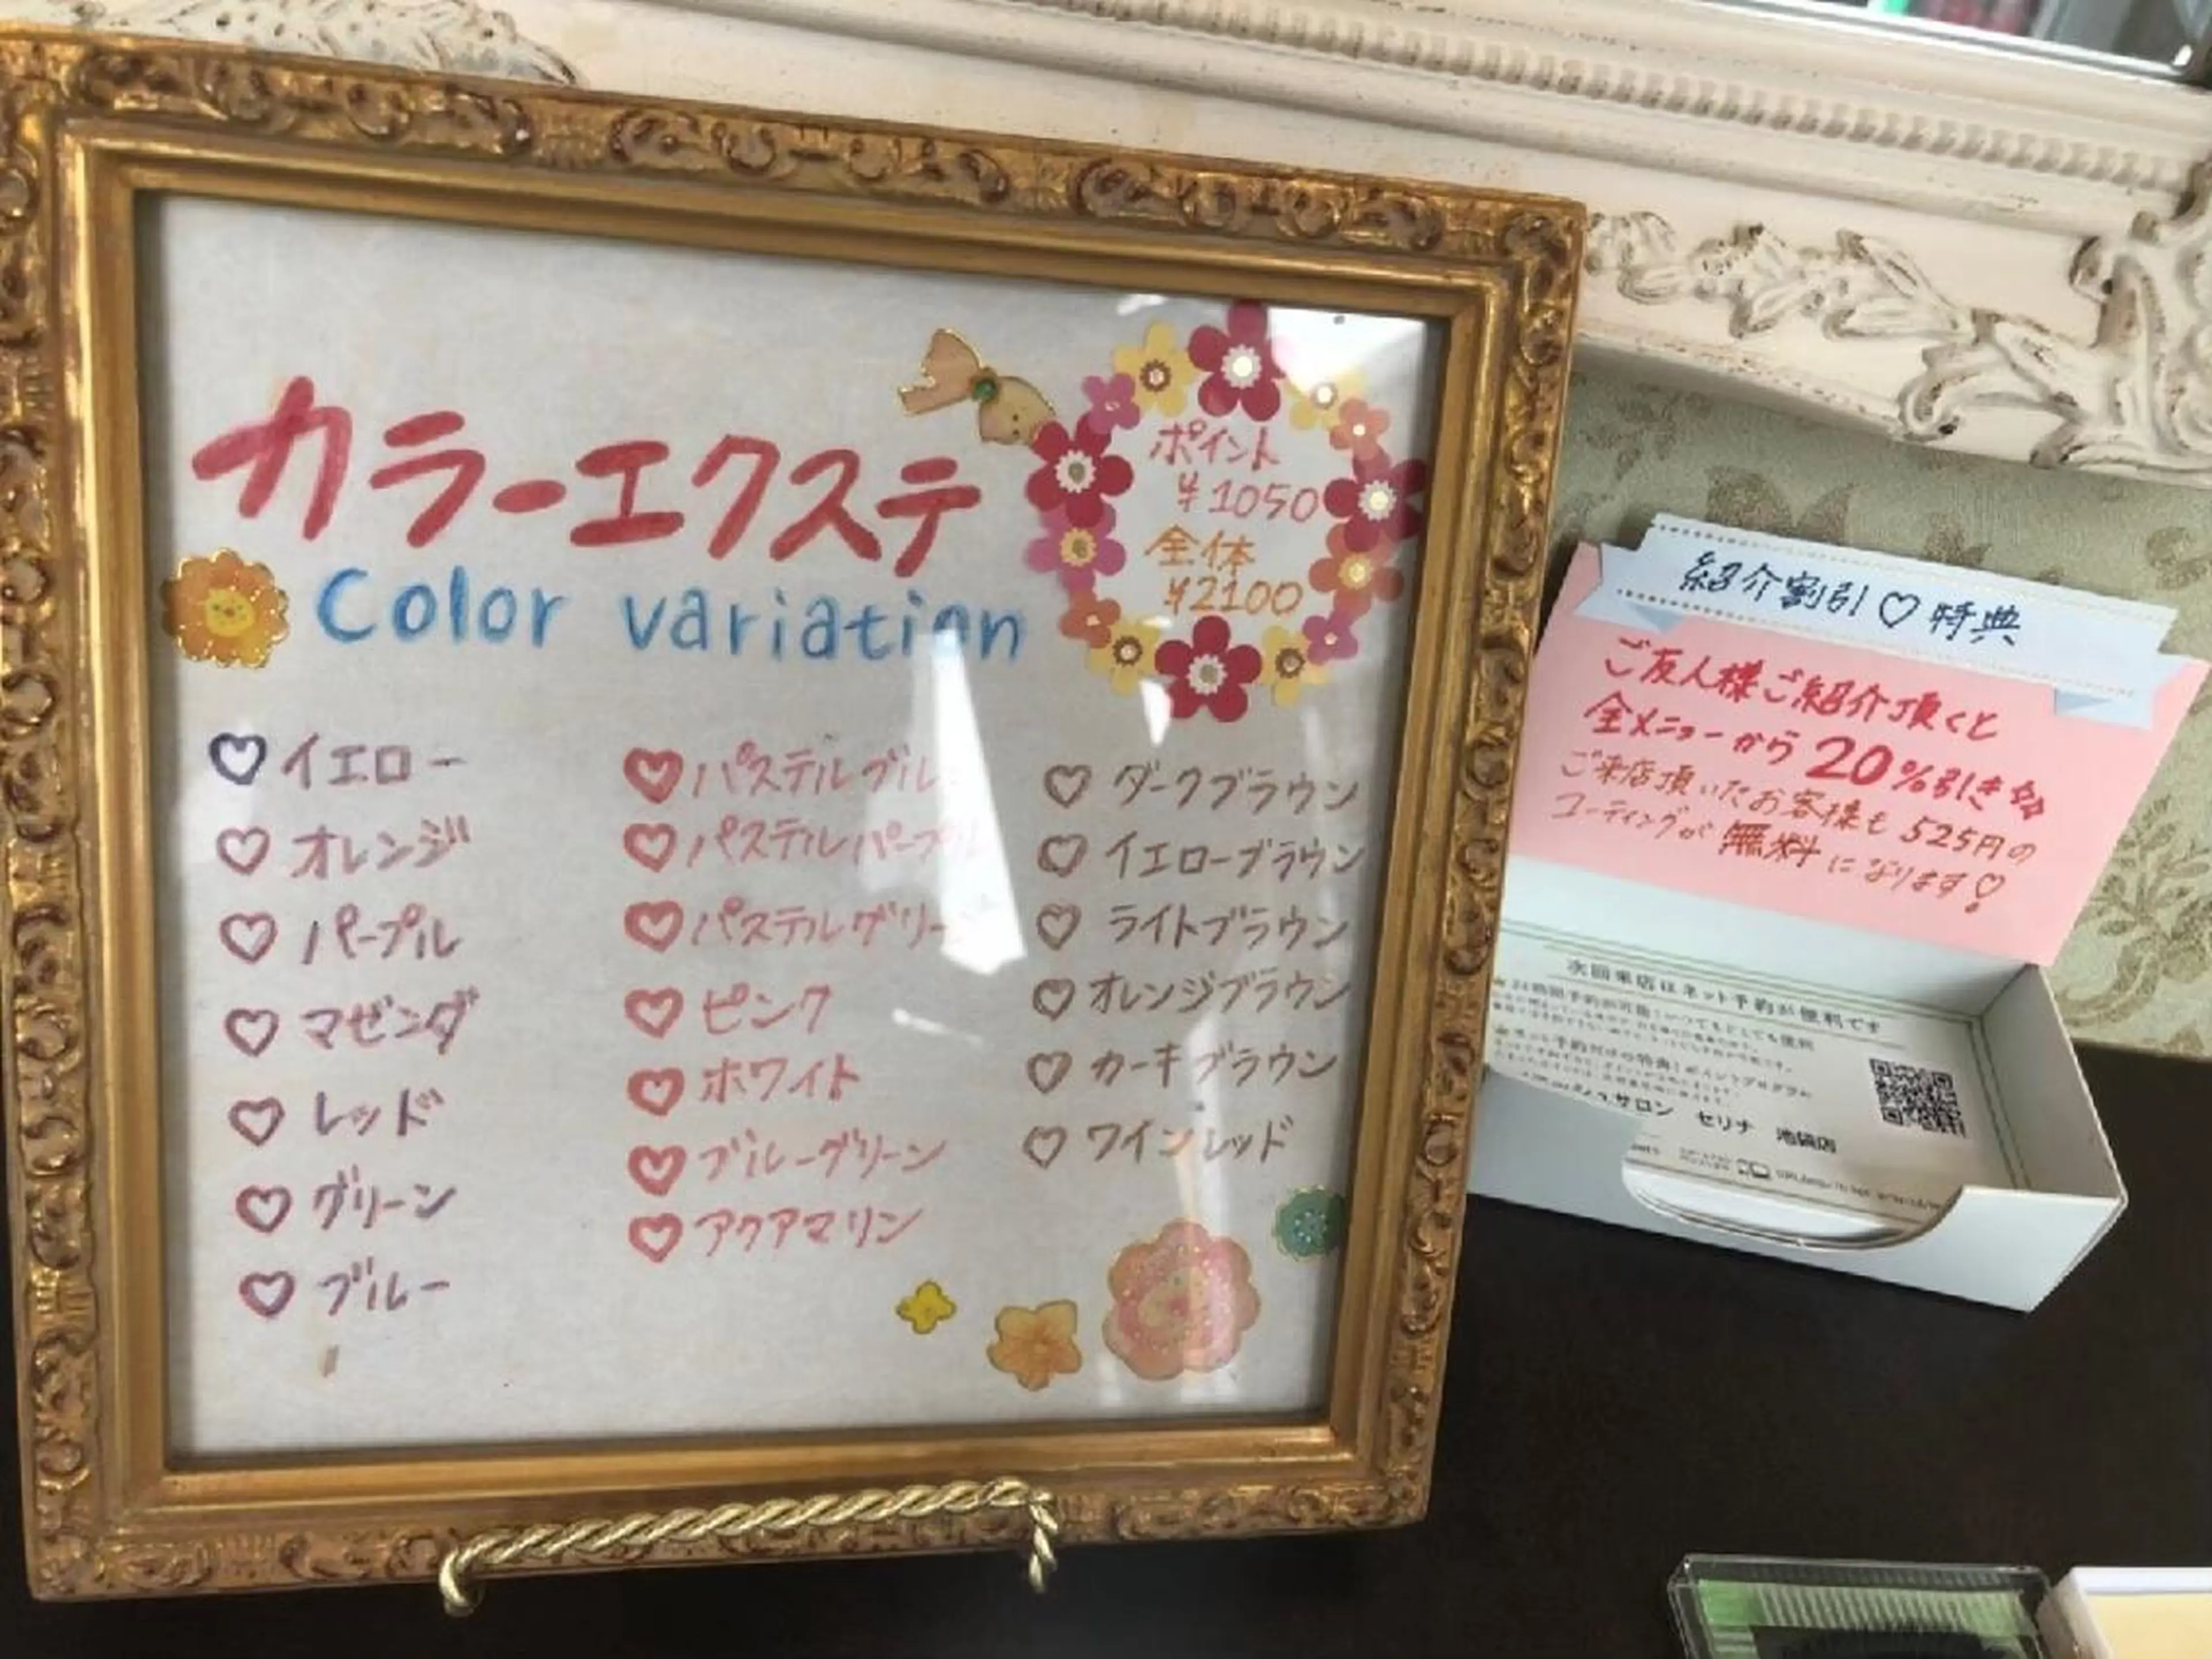 カラーエクステ
Color variation
ポイント
¥1050
全体
¥2100
イエロー
オレンジ
パープル
マゼンダ
レッド
グリーン
ブルー
パステルブルー
パステルパープル
パステルグリーン
ピンク
ホワイト
ブルーグリーン
アクアマリン
ダークブラウン
イエローブラウン
ライトブラウン
オレンジブラウン
カーキブラウン
ワインレッド
紹介割引♡特典
ご友人様ご紹介頂くと
全メニューから20%引き☆
ご来店頂いたお客様も525円の
コーティングが無料になります♡!
次回来店はネット予約が便利です
サロン セリナ 池袋店